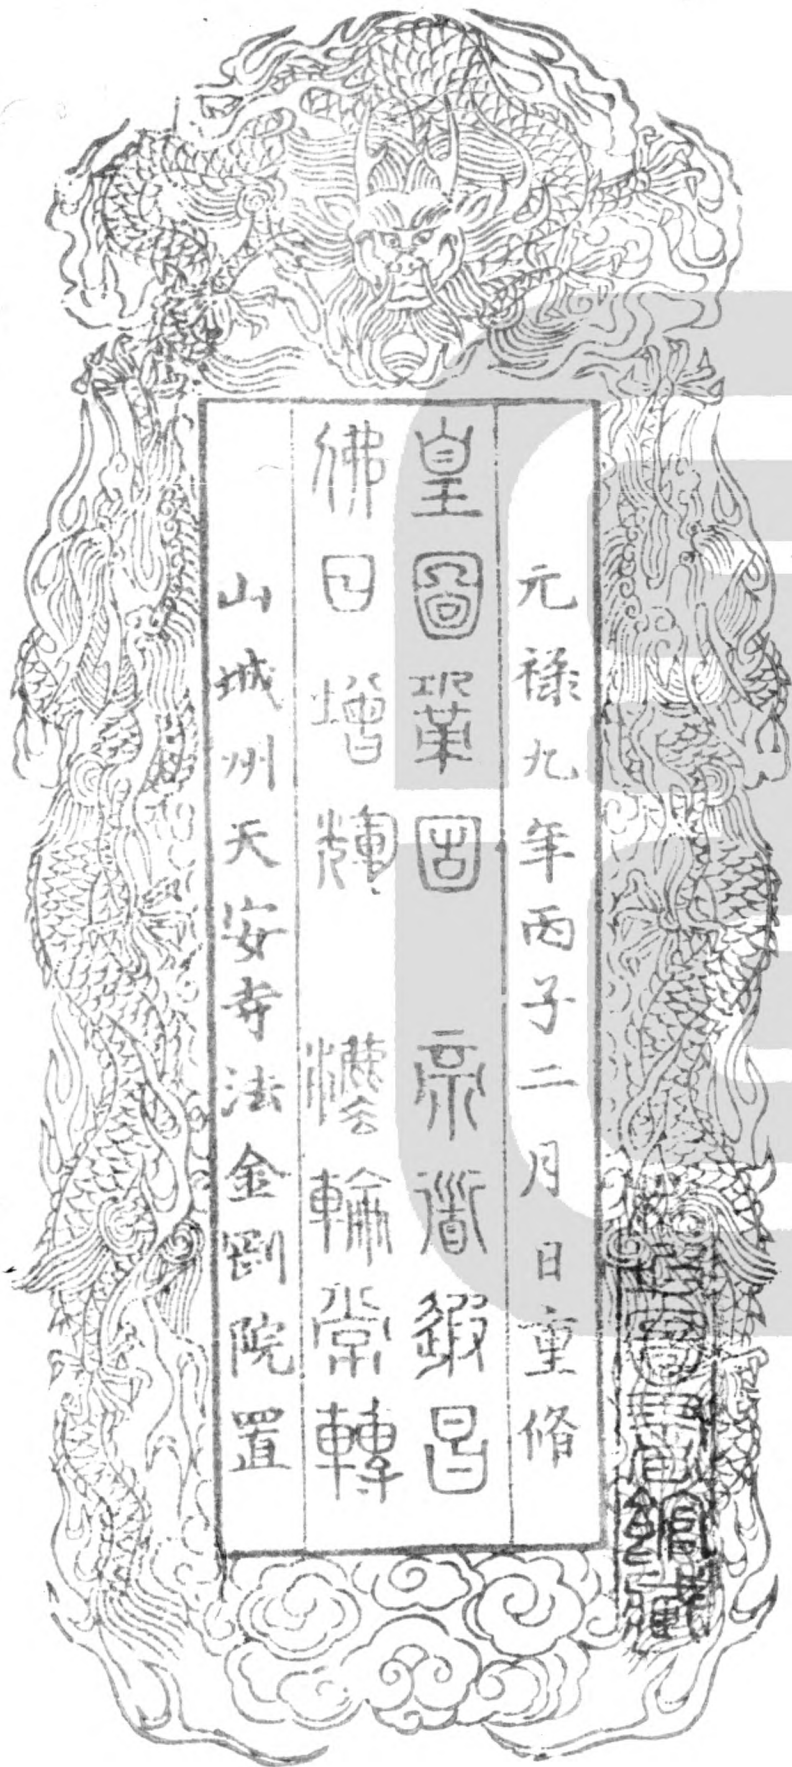 元禄九年丙子二月　日重脩
皇圖鞏固　帝道遐昌
佛日增輝　法輪常轉
山城州天安寺法金剛院置
圖書館藏